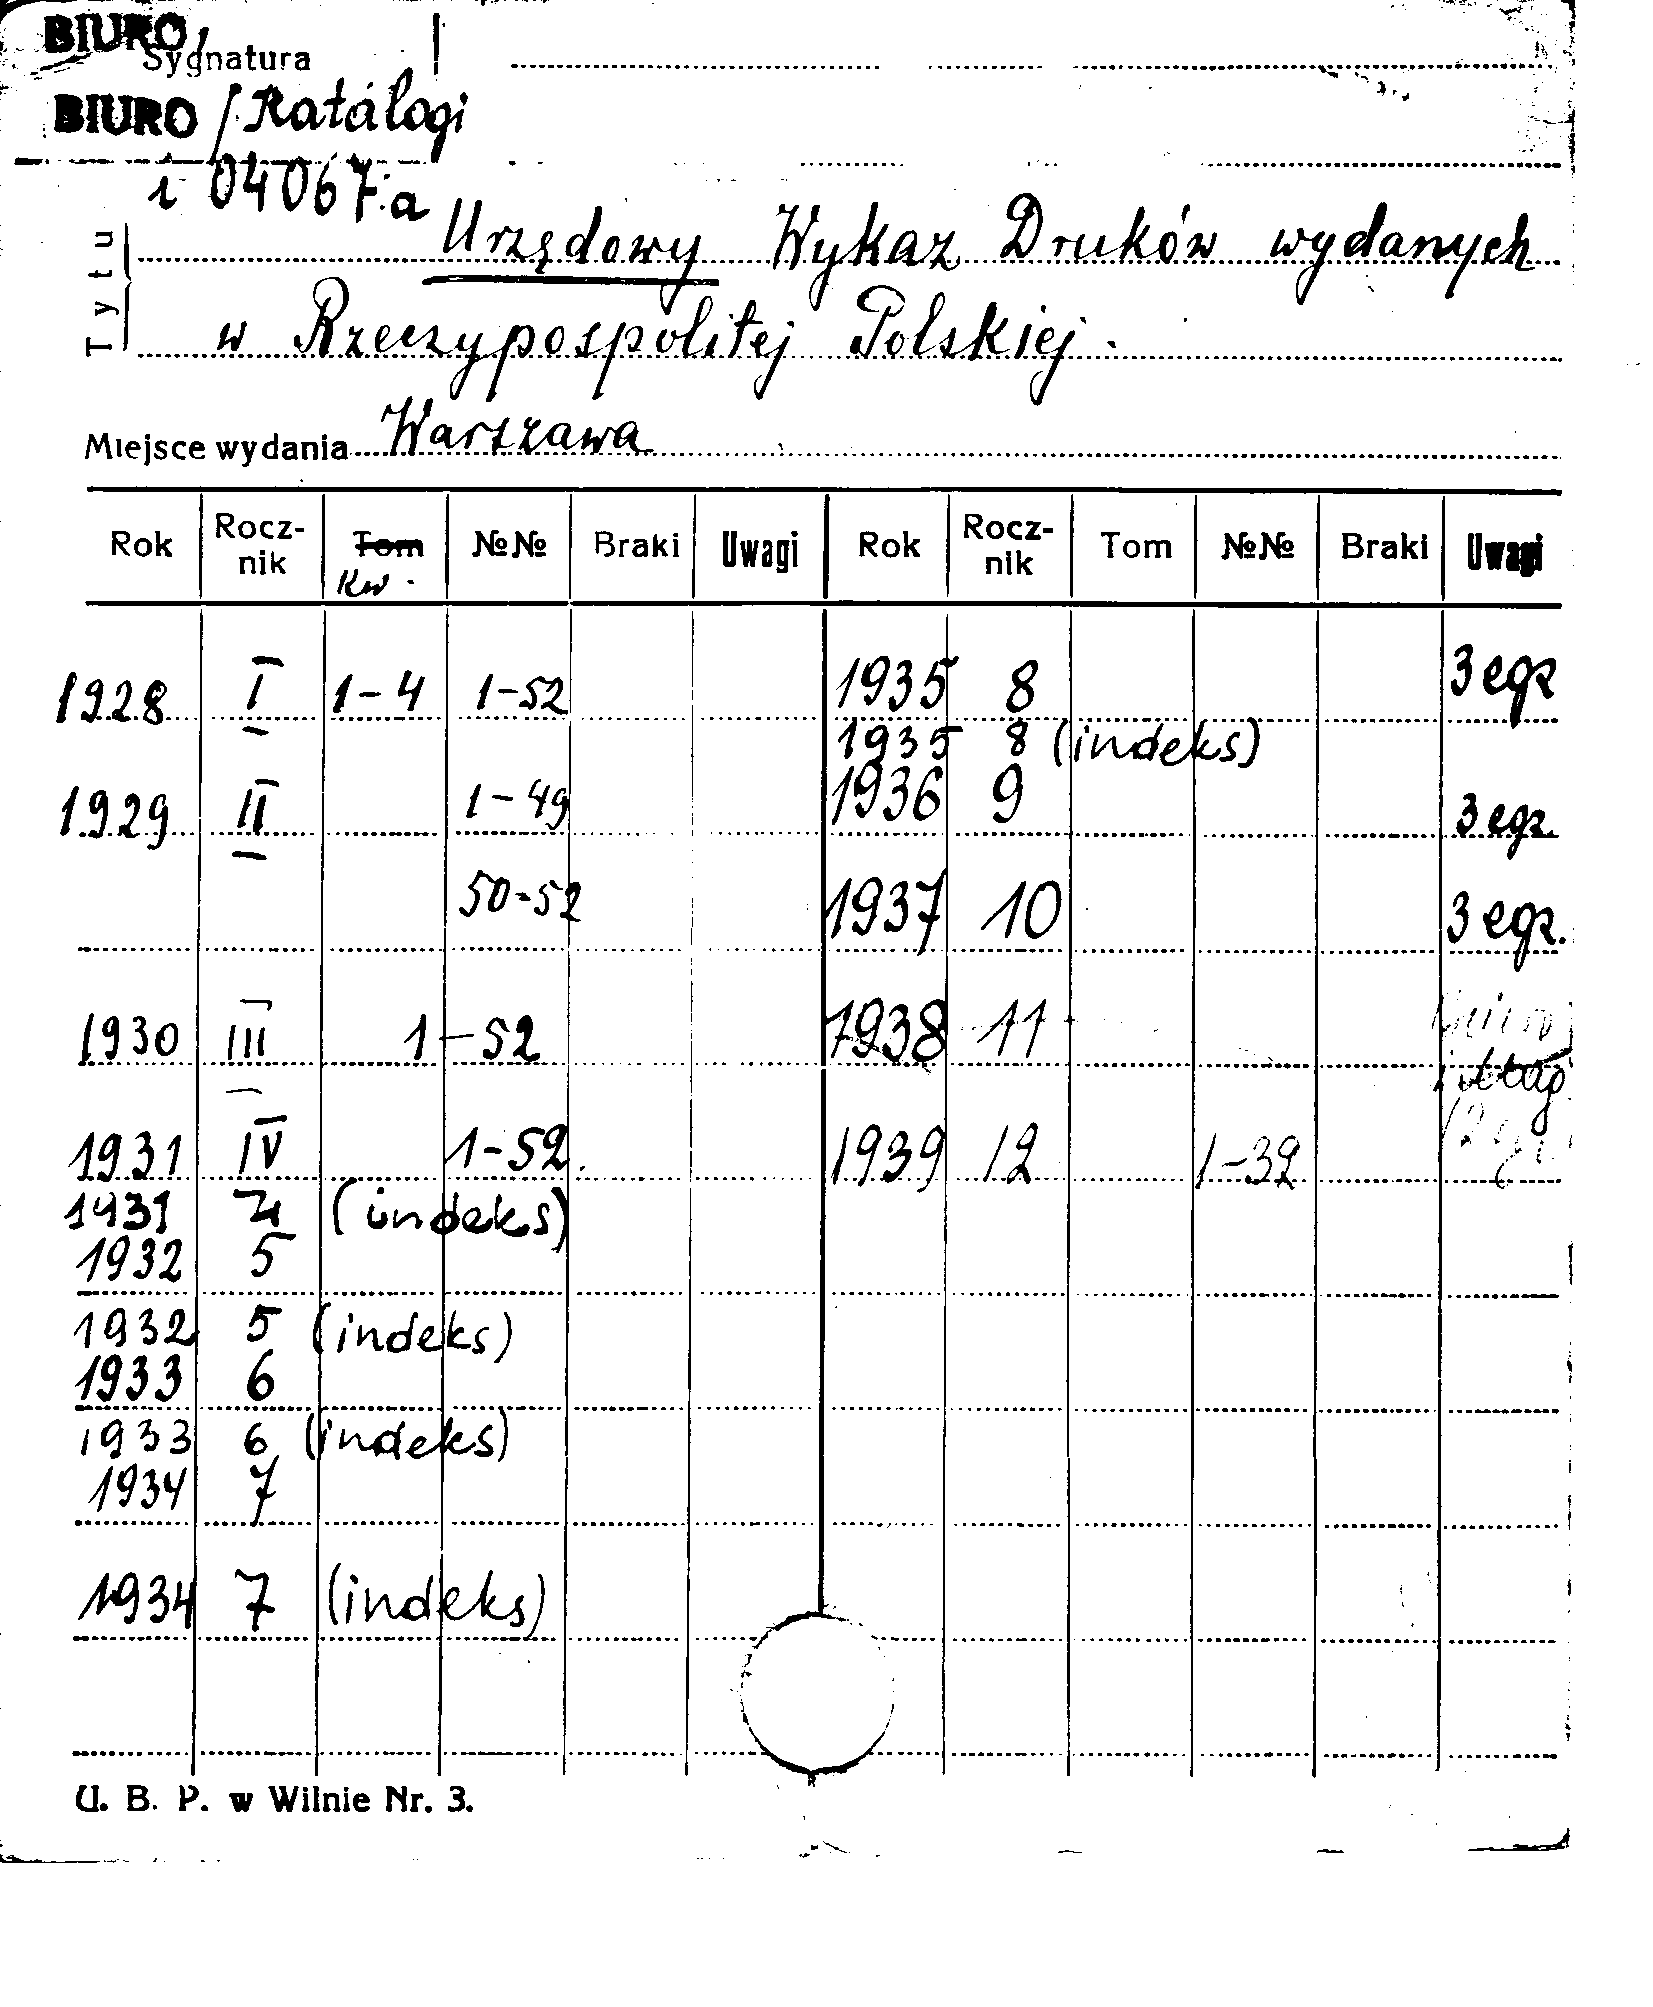 BIURO,
Sygnatura
BIURO / Katalogi
i 04067.a
Tytuł Urzędowy Wykaz Druków wydanych
w Rzeczypospolitej Polskiej.
Miejsce wydania Warszawa
Rok Rocz-nik Tom Kw. №№ Braki Uwagi Rok Rocz-nik Tom №№ Braki Uwagi
1928 I 1-4 1-52 1935 8 3 egz
1935 8 (indeks)
1929 II 1-49 1936 9 3 egz.
50-52 1937 10 3 egz.
1930 III 1-52 1938 11
1931 IV 1-52. 1939 12 1-32
1931 4 (indeks)
1932 5
1932 5 (indeks)
1933 6
1933 6 (indeks)
1934 7
1934 7 (indeks)
U. B. P. w Wilnie Nr. 3.